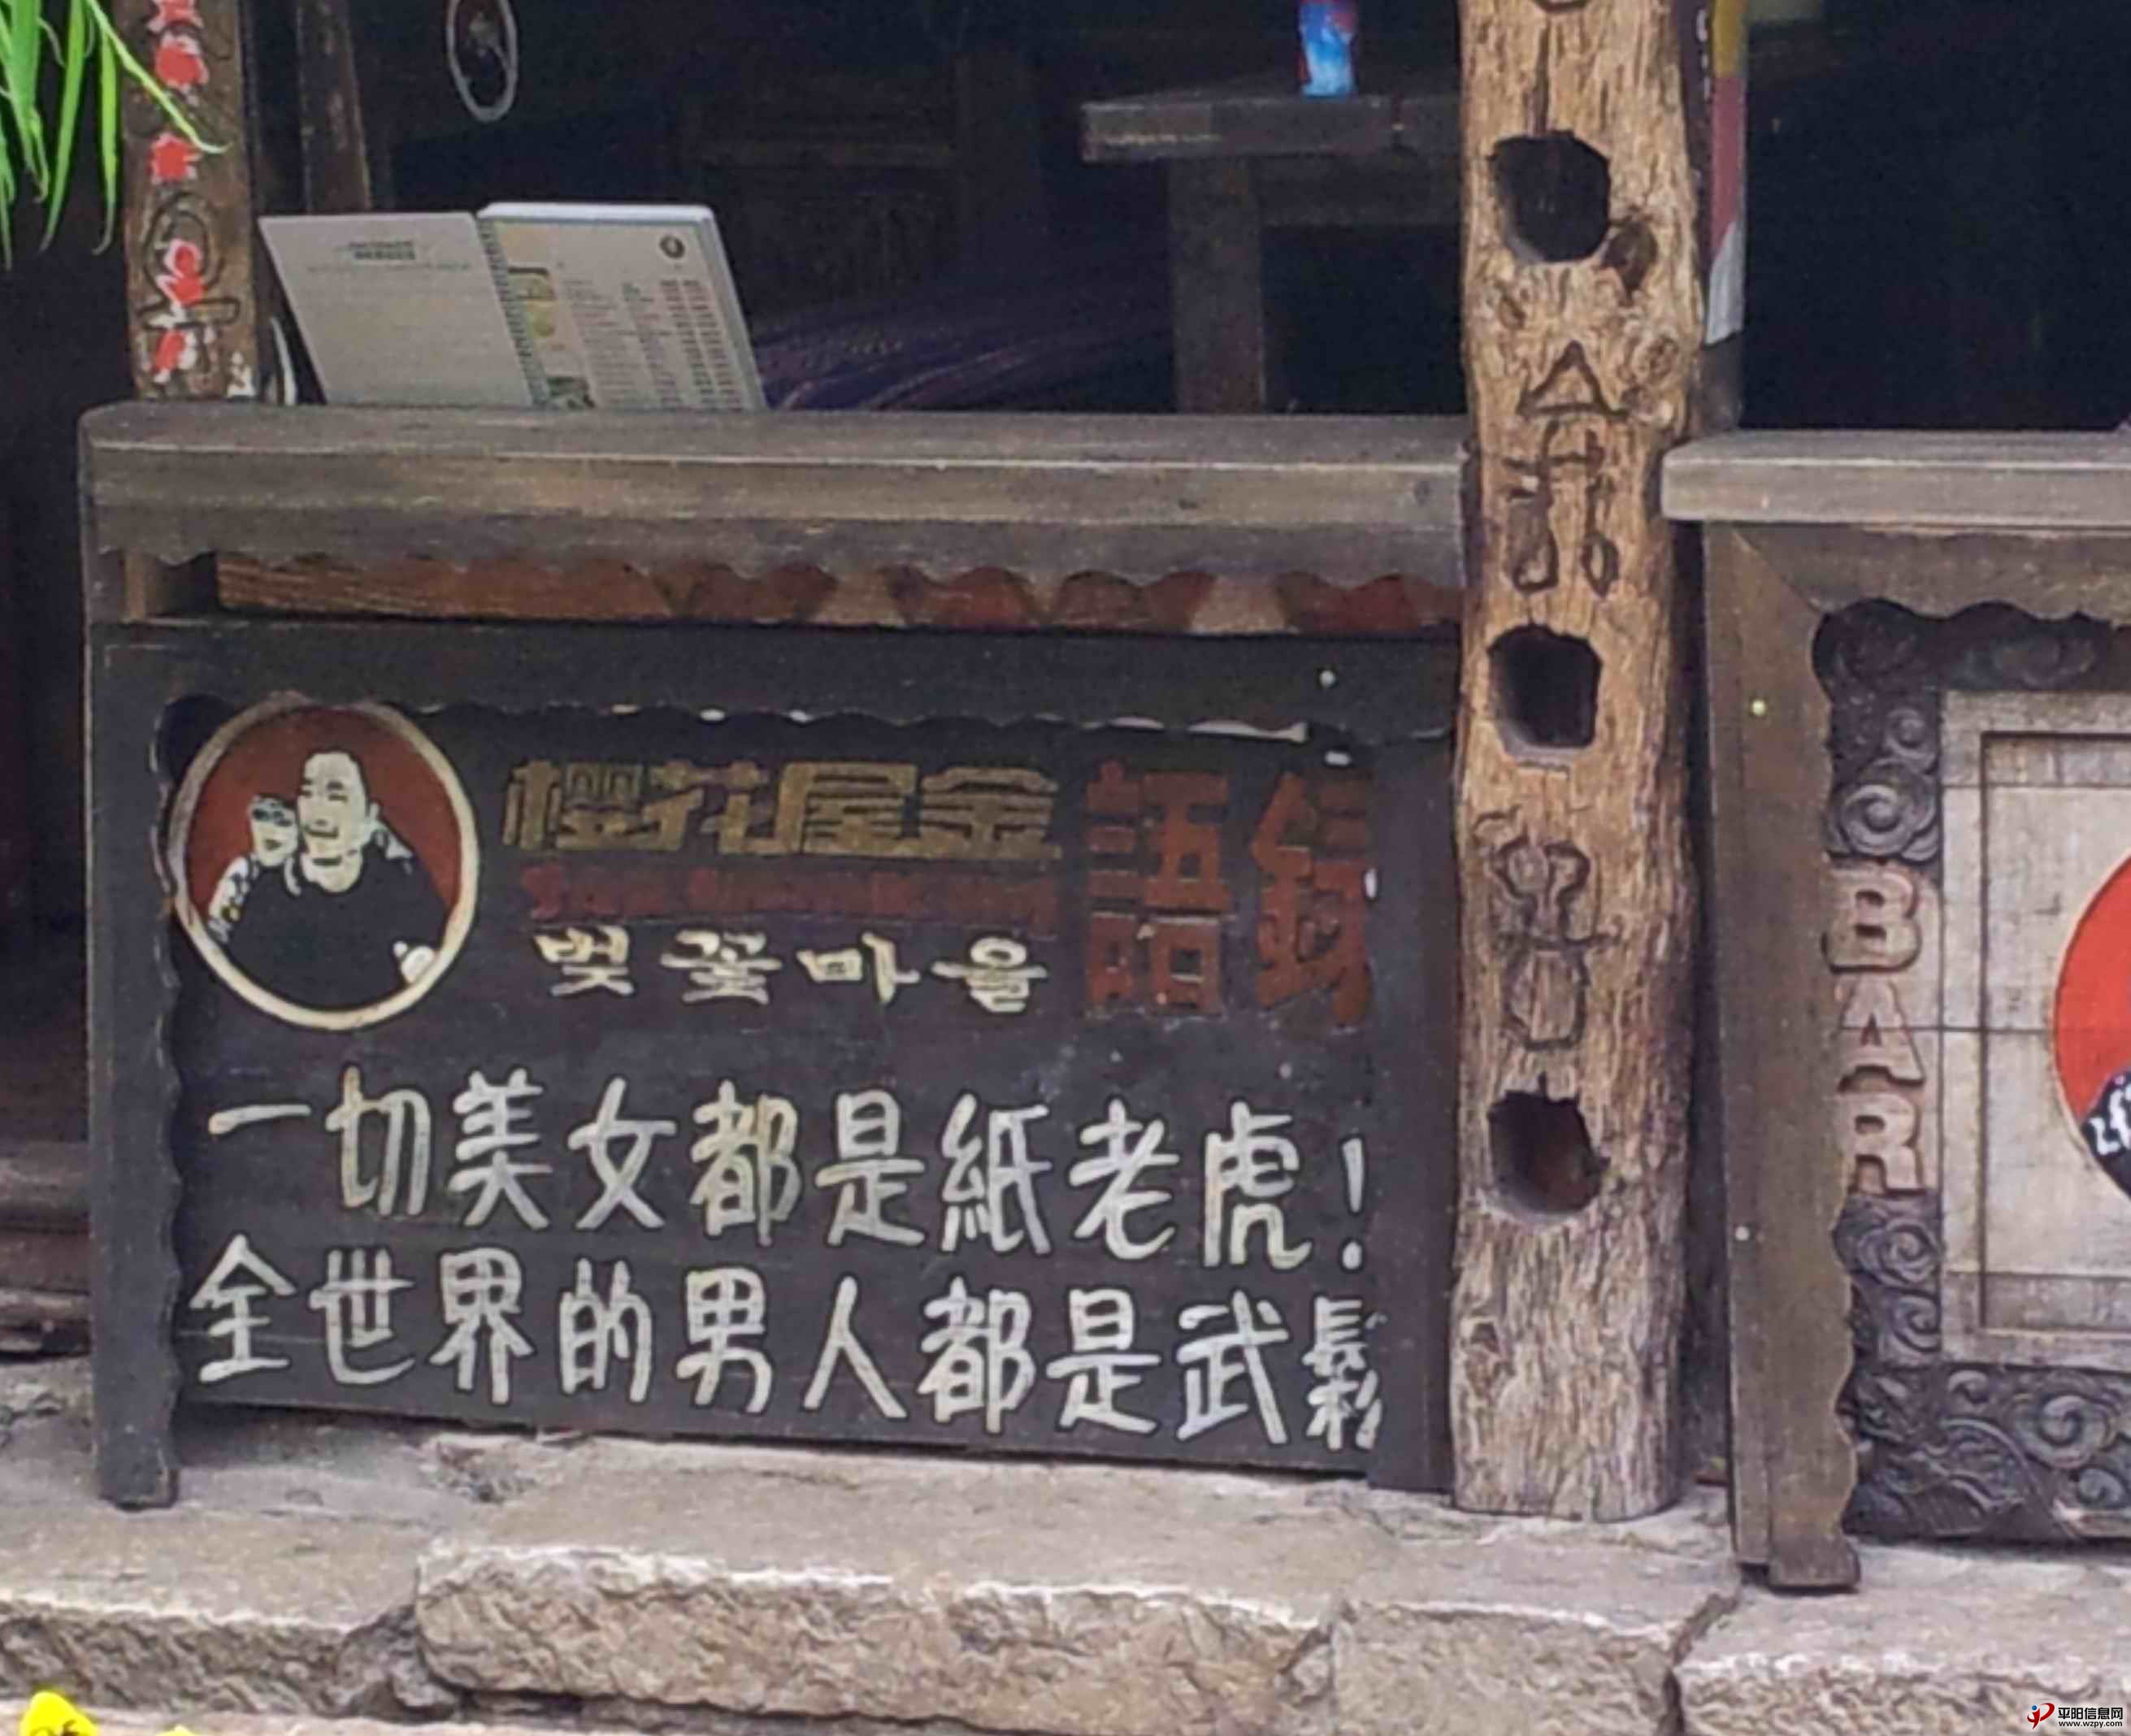 樱花屋金
語錄
벚꽃마을
一切美女都是紙老虎!
全世界的男人都是武鬆
BAR
平阳信息网
www.wzpy.com